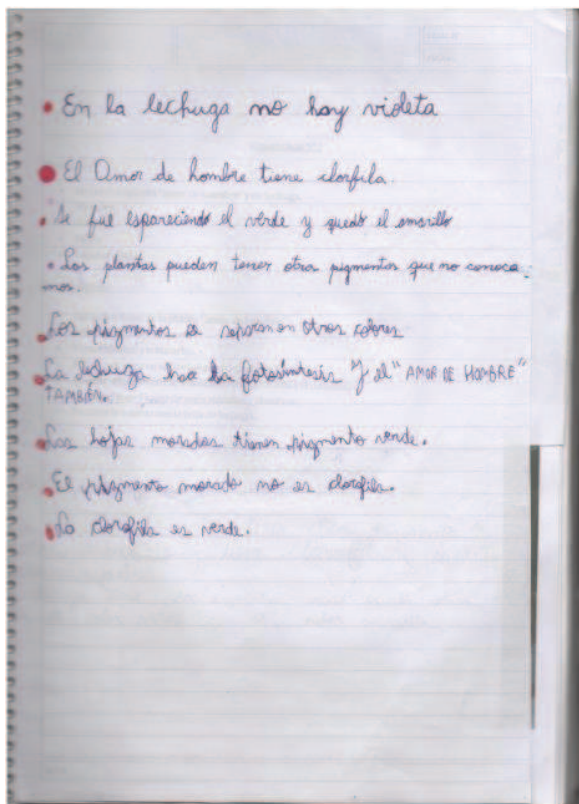 • En la lechuga no hay violeta
• El Amor de hombre tiene clorfila.
• Se fue espareciendo el verde y quedo el amarillo
• Las plantas pueden tener otros pigmentos que no conoca-
mos.
• Los pigmentos se separan en otros colores
• La lechuga hace la fotosíntesis y el "AMOR DE HOMBRE"
TAMBIÉN.
• Las hojas moradas tienen pigmento verde.
• El pigmento morado no es clorofila.
• La clorofila es verde.